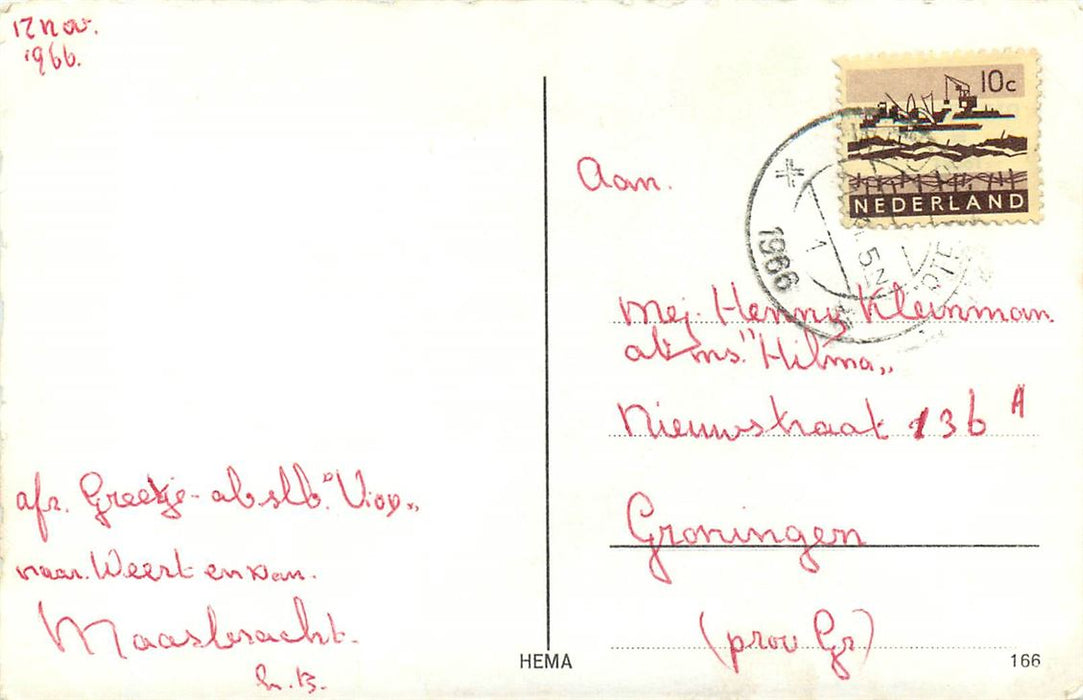 12 nov.
1966.
10c
NEDERLAND
1966
Aan.
Mej. Henny Kleinman
ab ms. "Hilma„
Nieuwstraat 136 A
Groningen
(prov Gr)
afz. Greetje - ab slb. "Viod„
naar. Weert en van.
Maasbracht.
HEMA
166